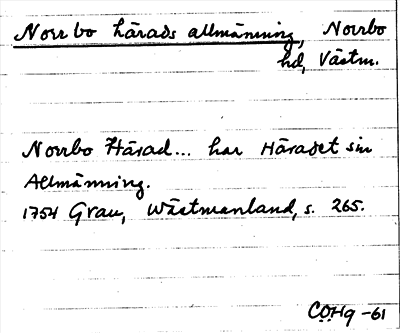 Norrbo härads allmänning, Norrbo
hd, Västm.
Norrbo Härad... har Häradet sin
Allmänning.
1754 Grau, Wästmanland, s. 265.
COHq -61